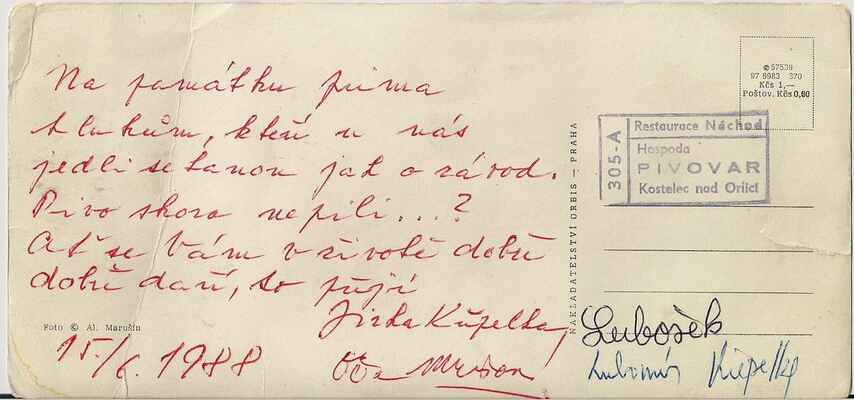 Na památku prima
klukům, kteří u nás
jedli se tanou jak o závod.
Pivo skoro nepili...?
Ať se Vám v životě dobře
dobře daří, to přejí
Jirda Křepelka,
15/6. 1988
Lubošek
Lubomír Křepelka
Foto © Al. Marušin
NAKLADATELSTVÍ ORBIS — PRAHA
57539
97 9983 370
Kčs 1,—
Poštov. Kčs 0,60
305-A
Restaurace Náchod
Hospoda
PIVOVAR
Kostelec nad Orlicí